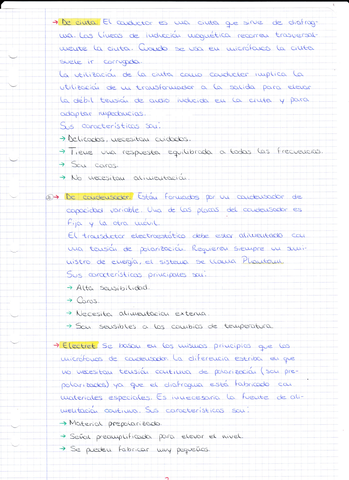 → De cinta. El conductor es una cinta que sirve de diafrag-
ma. Las líneas de inducción magnética recorren trasversal-
mente la cinta. Cuando se usa en micrófonos la cinta
suele ir corrugada.
La utilización de la cinta como conductor implica la
utilización de un transformador a la salida para elevar
la débil tensión de audio inducida en la cinta y para
adaptar impedancias.
Sus características son:
→ Delicados, necesitan cuidados.
→ Tiene una respuesta equilibrada a todas las frecuencias.
→ Son caros.
→ No necesitan alimentación.
→ De condensador. Están formados por un condensador de
capacidad variable. Una de las placas del condensador es
fija y la otra móvil.
El transductor electroestático debe estar alimentado con
una tensión de polarización. Requieren siempre un sumi-
nistro de energía, el sistema se llama Phantom.
Sus características principales son:
→ Alta sensibilidad.
→ Caros.
→ Necesita alimentación externa.
→ Son sensibles a los cambios de temperatura.
→ Electret. Se basan en los mismos principios que los
micrófonos de condensador. La diferencia estriba en que
no necesitan tensión continua de polarización (son pre-
polarizados) ya que el diafragma está fabricado con
materiales especiales. Es innecesaria la fuente de ali-
mentación continua. Sus características son:
→ Material prepolarizado.
→ Señal preamplificada para elevar el nivel.
→ Se pueden fabricar muy pequeños.